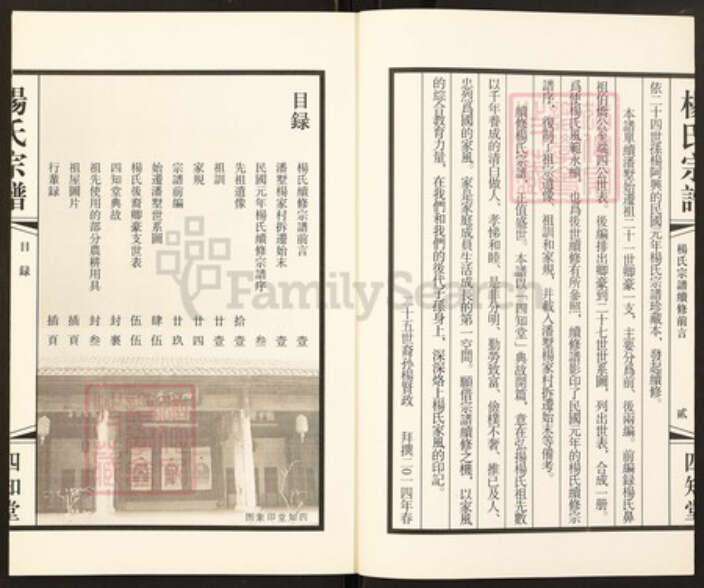 依二十四世孫楊阿興的民國元年楊氏宗譜珍藏本、發起續修。
本譜單續潘墅始遷祖二十一世卿豪一支。主要分爲前、後兩編。前編錄楊氏鼻
祖伯僑公至端四公世表、後編排出卿豪到二十七世世系圖、列出世表、合成一册。
爲使楊氏風範永續、也爲後世續修有所參照、續修譜影印了民國元年的楊氏續修宗
譜序、復制了祖宗遺像、祖訓和家規、并載入潘墅楊家村拆遷始末等備考。
續修楊氏宗譜、正值盛世。本譜以「四知堂」典故開篇、意在弘揚楊氏祖先數
以千年養成的清白做人、孝悌和睦、是非分明、勤勞致富、儉樸不奢、推已及人、
忠爲國的家風。家是家庭成員生活成長的第一空間。願借宗譜續修之機、以家風
的綜合教育力量、在我們和我們的後代子孫身上、深深烙上楊氏家風的印記。
二十五世裔孫楊賢政 拜撰二〇一四年春
楊氏宗譜
楊氏宗譜續修前言
貳
四知堂
目錄
楊氏續修宗譜前言 壹
潘墅楊家村拆遷始末 壹
民國元年楊氏續修宗譜序 叁
先祖遺像 拾壹
祖訓 廿壹
家規 廿四
宗譜前編 廿玖
始遷潘墅世系圖 肆伍
楊氏後裔卿豪支世表 伍伍
四知堂典故 封裏
祖先使用的部分農耕用具 封叁
祖屋圖片 插頁
行輩録 插頁
四知堂印象圖
楊氏宗譜
目錄
四知堂
FamilySearch